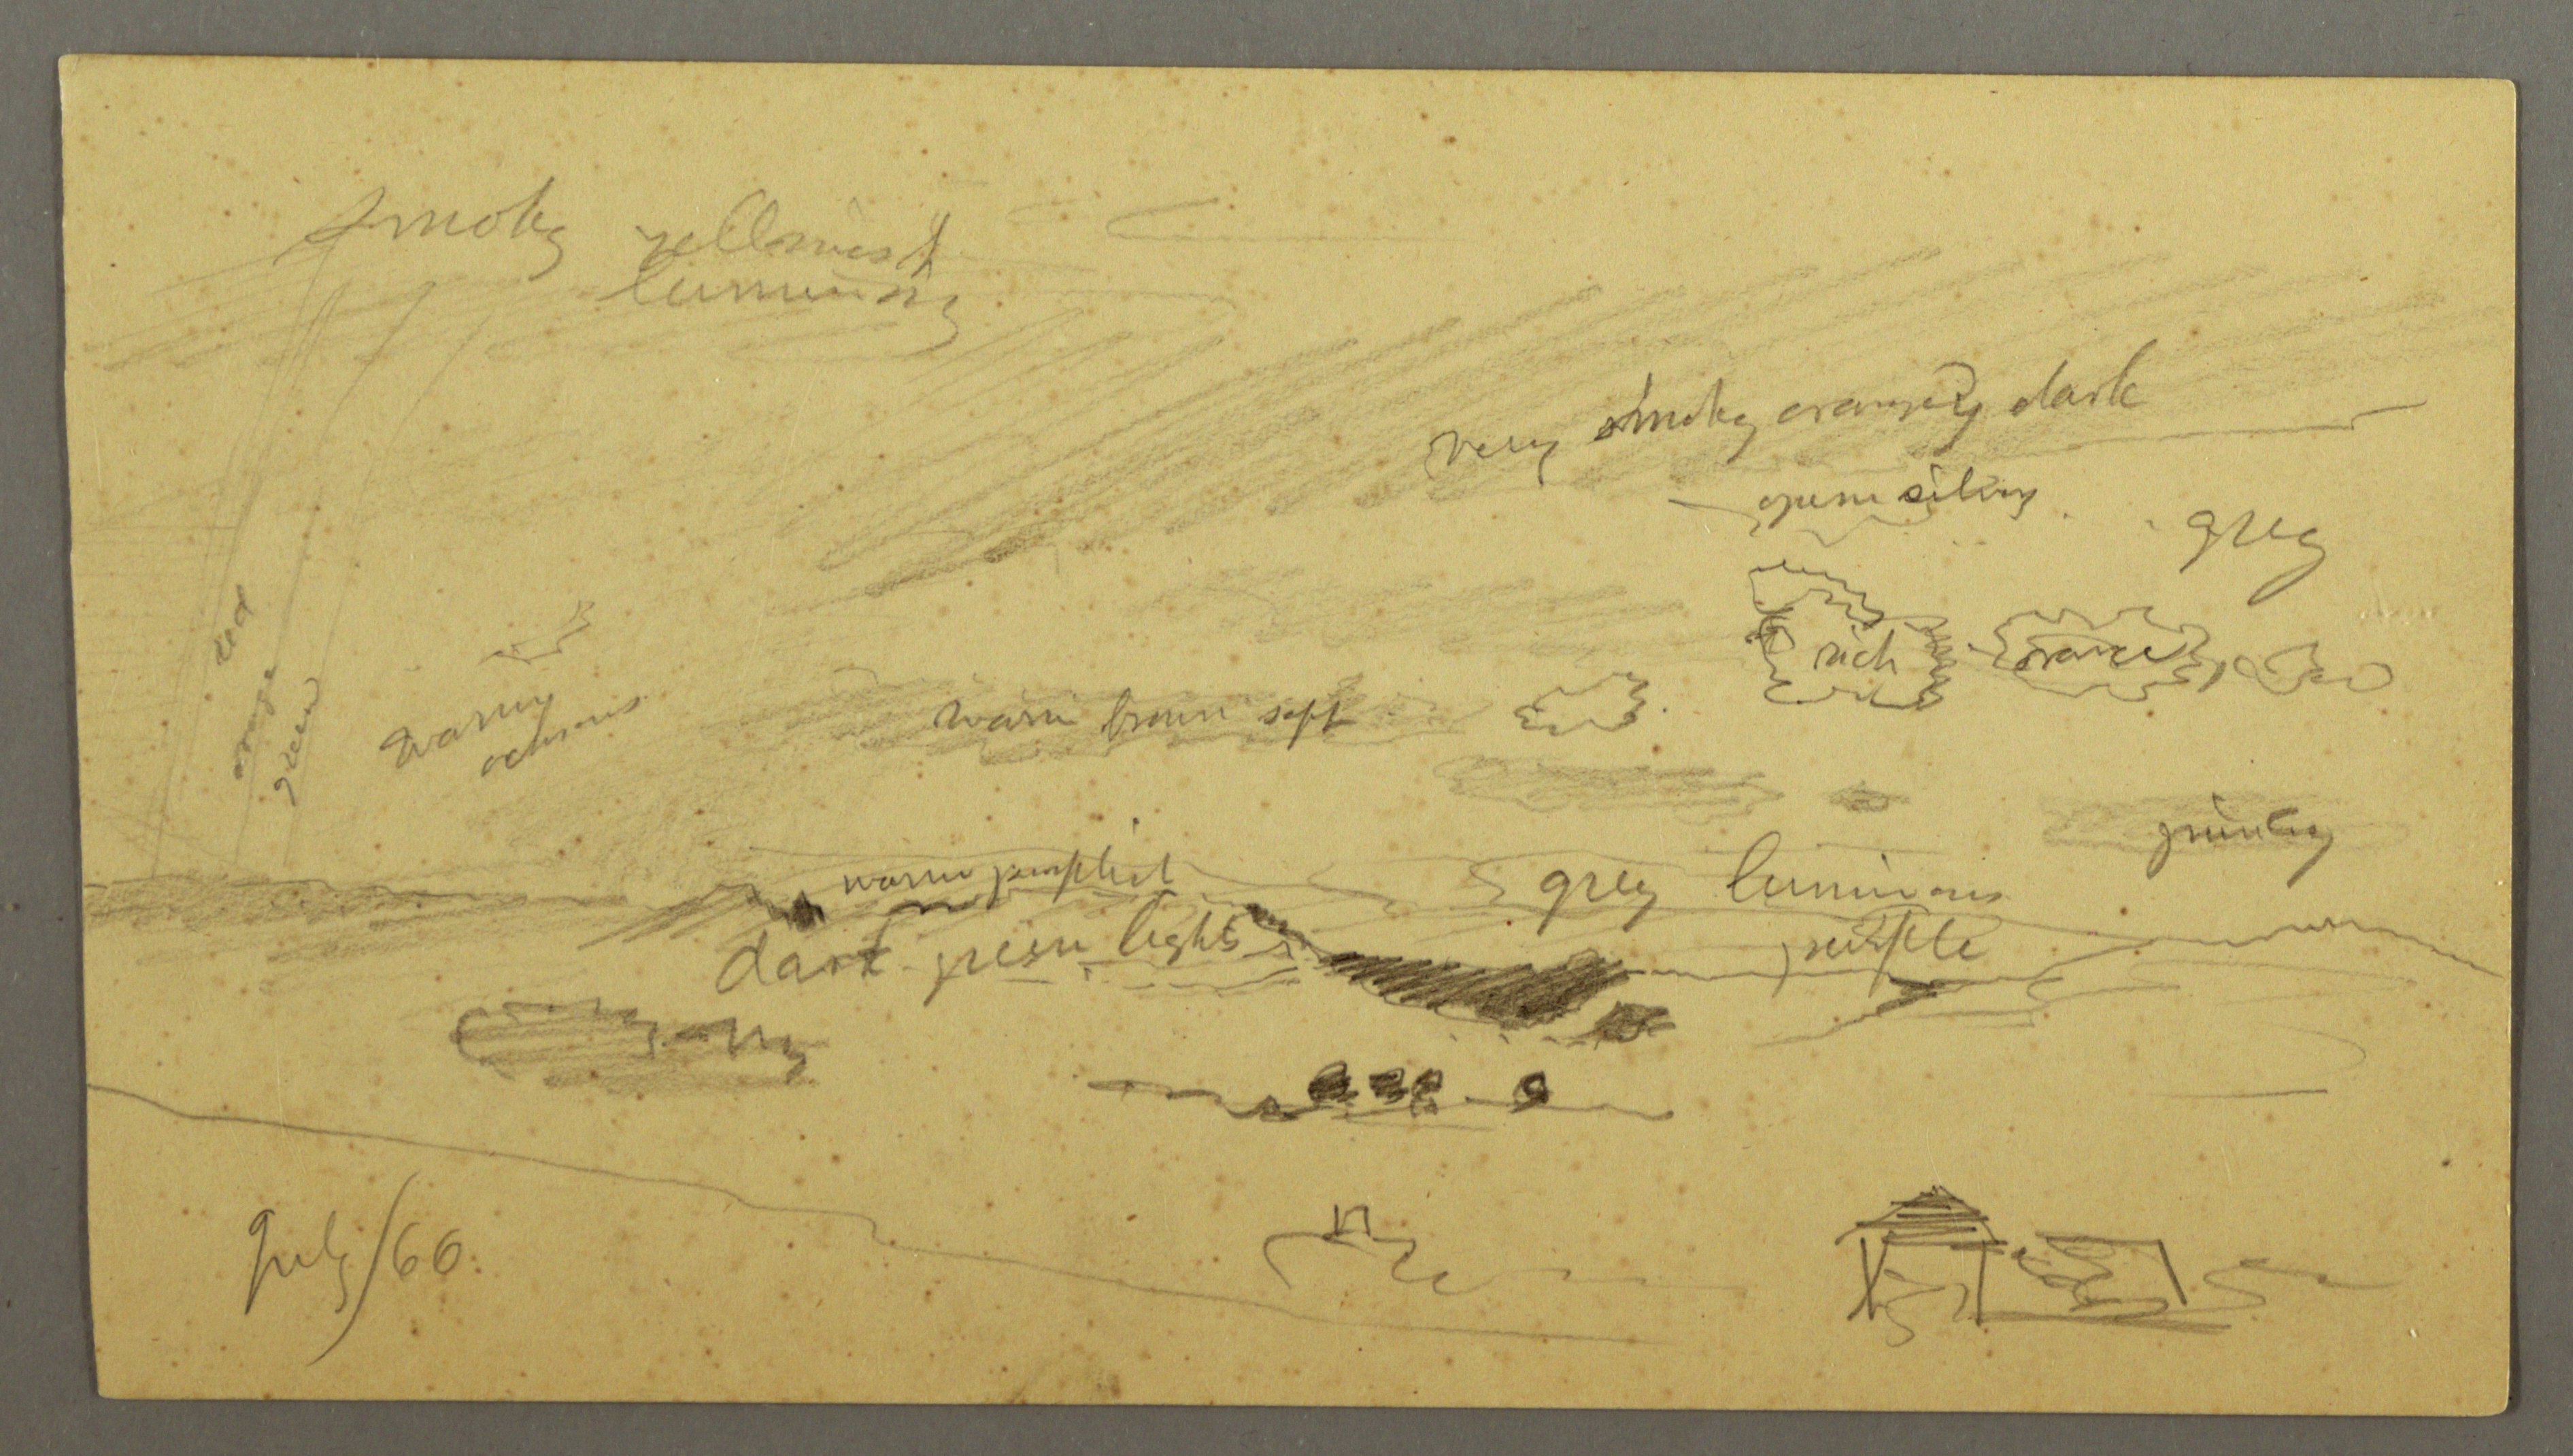 smoky yellowish
luminous
very smoky orangey dark
open silvery
grey
rich orange
red
orange
green
warm
ochrous
warm brown soft
warm purplish
grey luminous
purple
dark green lights
July/66.